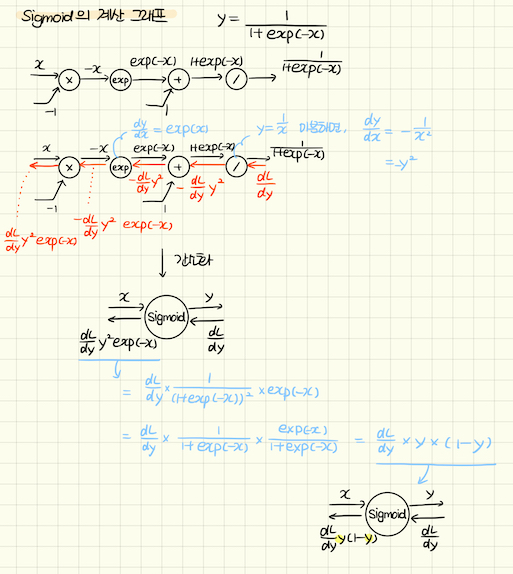 Sigmoid의 계산 그래프 y = 1/(1+exp(-x))
x -x exp(-x) 1+exp(-x) 1/(1+exp(-x))
× exp + /
-1 1
dy/dx = exp(x) y = 1/x 미분하면, dy/dx = -1/x²
= -y²
x -x exp(-x) 1+exp(-x) 1/(1+exp(-x))
× exp + /
-dL/dy y² -dL/dy y² dL/dy
-1 1
dL/dy y² exp(-x) -dL/dy y² exp(-x)
간소화
x y
Sigmoid
dL/dy y² exp(-x) dL/dy
= dL/dy × 1/(1+exp(-x))² × exp(-x)
= dL/dy × 1/(1+exp(-x)) × exp(-x)/(1+exp(-x)) = dL/dy × y × (1-y)
x y
Sigmoid
dL/dy y(1-y) dL/dy